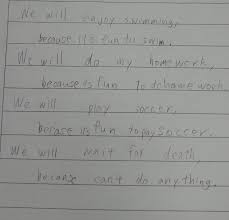 We will enjoy swimming,
because it's fun to swim.
We will do my homework,
because its fun to do home work
We will play soccer,
becase it's fun to pay soccer.
We will wait for death,
becanse can't do anything.